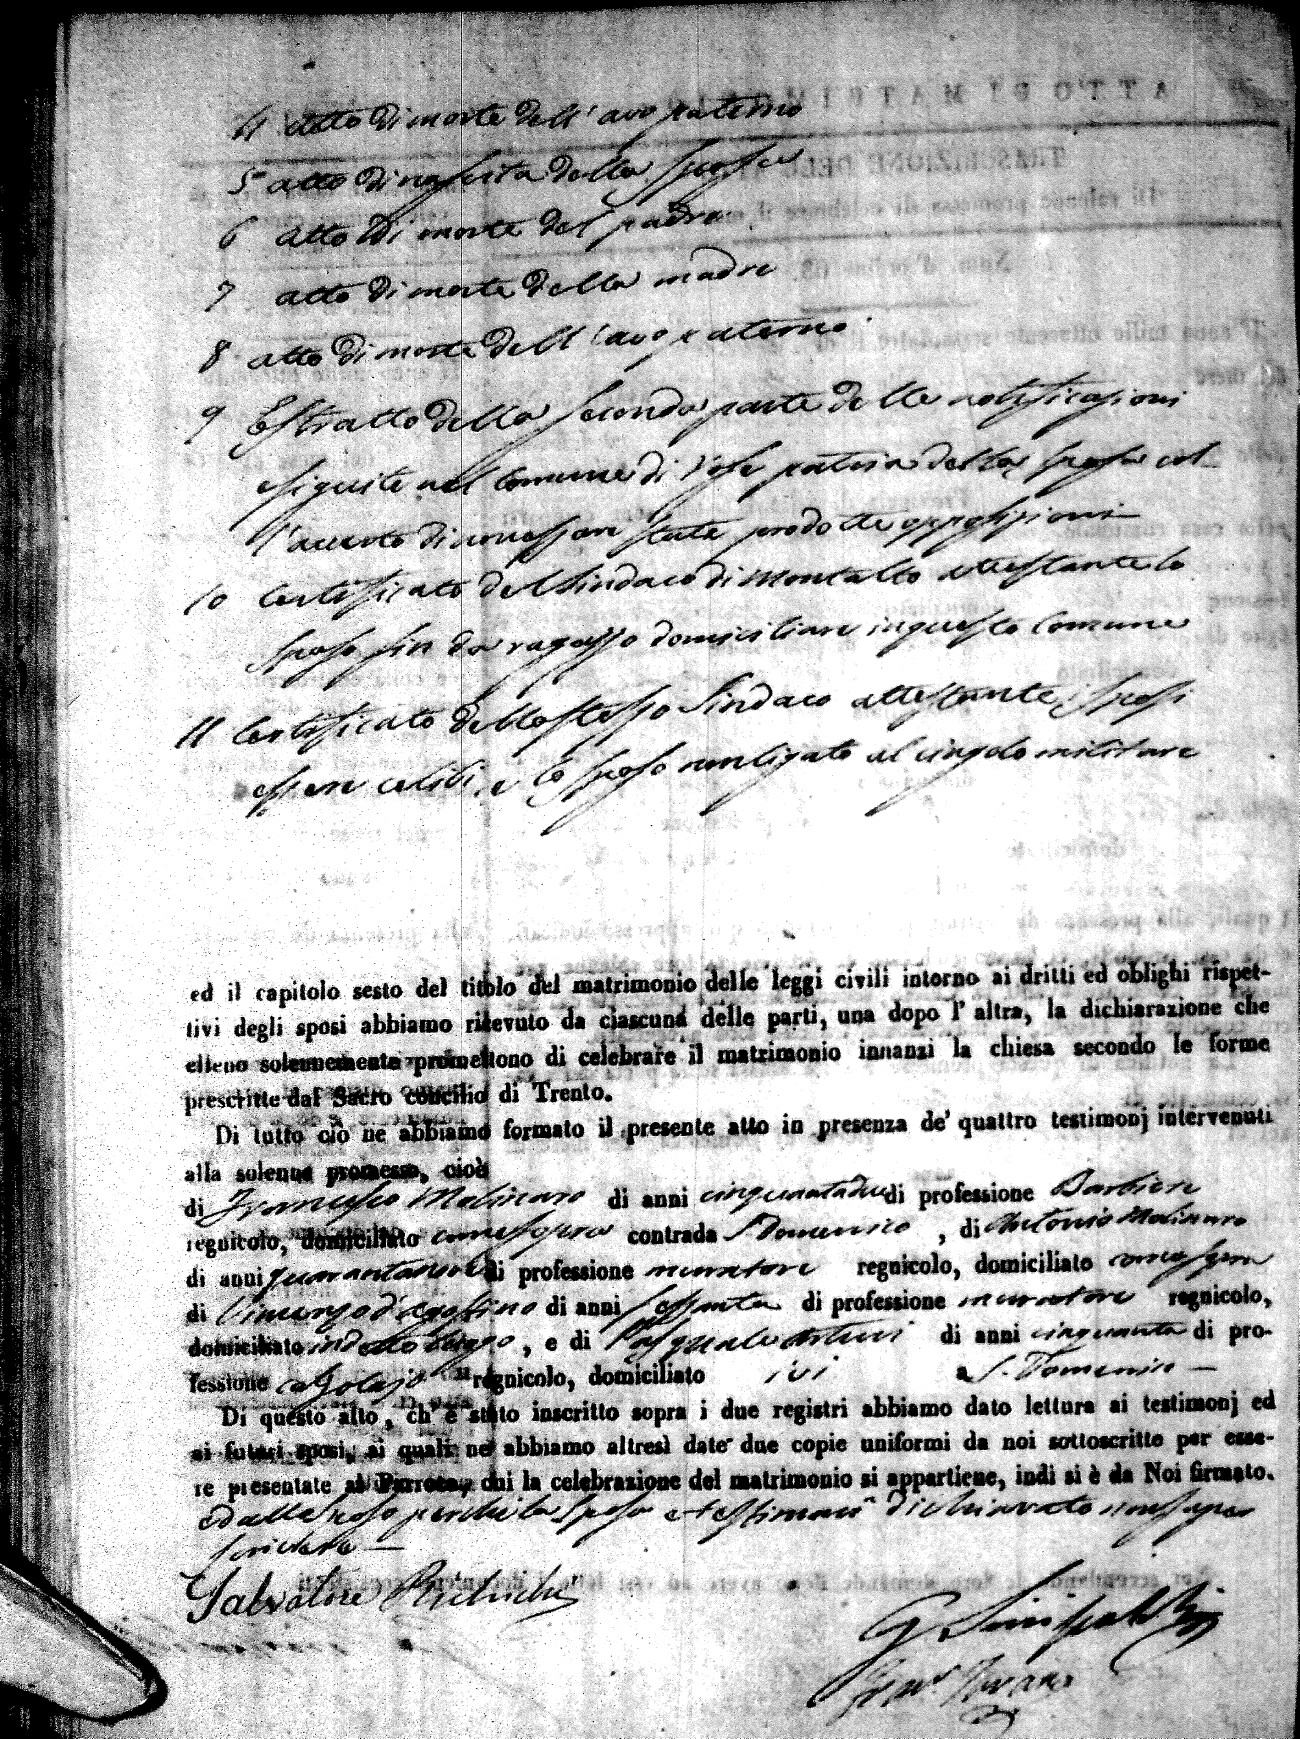 4 atto di morte dell'avo paterno
5° atto di nascita della sposa
6 atto di morte del padre
7 atto di morte della madre
8 atto di morte dell'avo paterno
9 Estratto della seconda parte delle notificazioni
eseguite nel Comune di Rose patria della sposa col
l'accerto di non essere state prodotte opposizioni
10 Certificato del Sindaco di Montalto attestante lo
sposo sin da ragazzo domiciliare in questo Comune
11 Certificato dello stesso Sindaco attestante i sposi
essere celibi, e lo sposo non ligato al cingolo militare
ed il capitolo sesto del titolo del matrimonio delle leggi civili intorno ai dritti ed oblighi rispet-
tivi degli sposi abbiamo ricevuto da ciascuna delle parti, una dopo l' altra, la dichiarazione che
elleno solennemente promettono di celebrare il matrimonio innanzi la chiesa secondo le forme
prescritte dal Sacro concilio di Trento.
Di tutto ciò ne abbiamo formato il presente atto in presenza de' quattro testimonj intervenuti
alla solenne promessa, cioè
di Francesco Molinaro di anni cinquantadue di professione Barbiere
regnicolo, domiciliato come sopra contrada S. Domenico , di Antonio Molinaro
di anni quarantanove di professione muratore regnicolo, domiciliato come sopra
di Vincenzo d'Agostino di anni sessanta di professione muratore regnicolo,
domiciliato in detto luogo , e di Pasquale Arturi di anni cinquanta di pro-
fessione regnicolo, domiciliato ivi a S. Domenico
Di questo atto, ch' è stato inscritto sopra i due registri abbiamo dato lettura ai testimonj ed
ai futuri sposi, ai quali ne abbiamo altresì date due copie uniformi da noi sottoscritte per esse-
re presentate al Parroco, cui la celebrazione del matrimonio si appartiene, indi si è da Noi firmato.
e dallo sposo perché la sposa e testimoni dichiarato non sapere
scrivere
Salvatore
G Sinispalchi